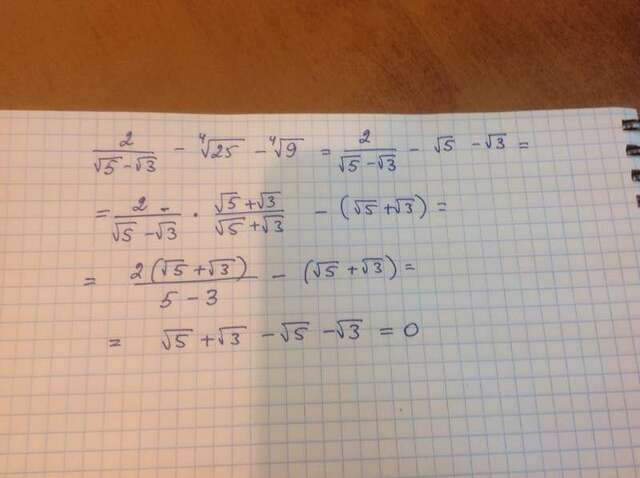 2/(√5 − √3) − ⁴√25 − ⁴√9 = 2/(√5 − √3) − √5 − √3 =
= 2/(√5 − √3) · (√5 + √3)/(√5 + √3) − (√5 + √3) =
= 2(√5 + √3)/(5 − 3) − (√5 + √3) =
= √5 + √3 − √5 − √3 = 0